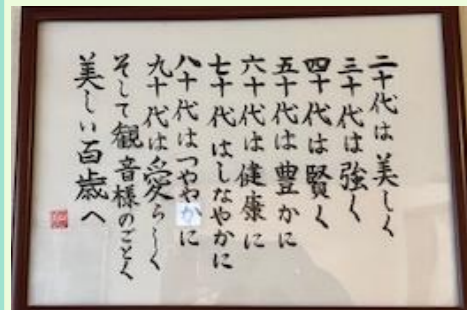 二十代は美しく
三十代は強く
四十代は賢く
五十代は豊かに
六十代は健康に
七十代はしなやかに
八十代はつややかに
九十代は愛らしく
そして観音様のごとく
美しい百歳へ